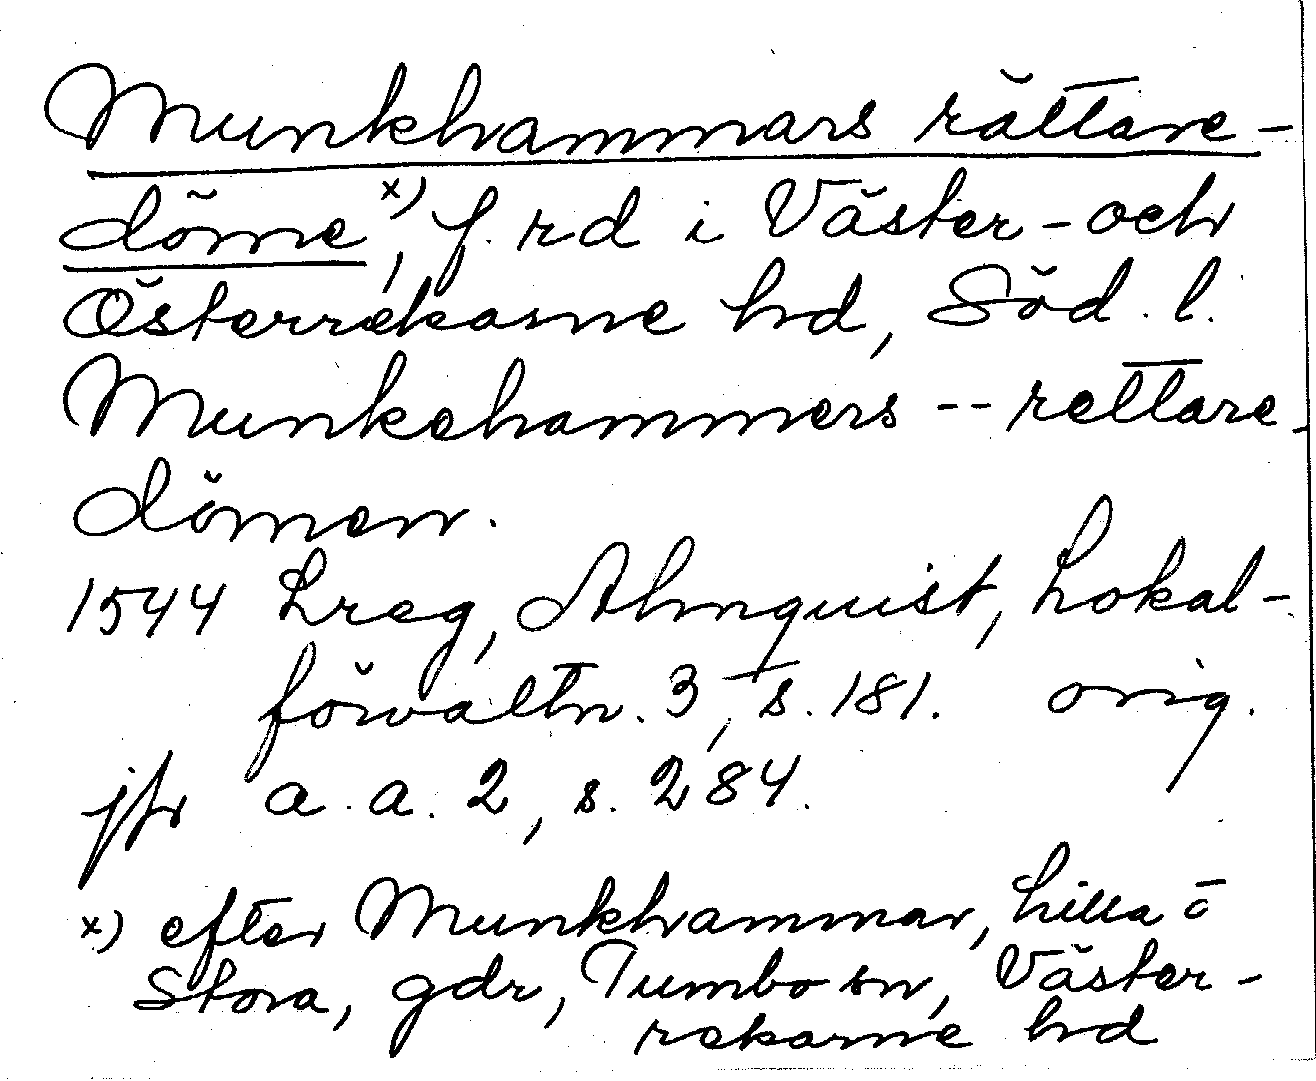 Munkhammars rättare-
döme x), f. rd i Väster- och
Österrekarne hd, Söd. l.
Munkehammers -- rettare-
dömen.
1544 Lreg, Almquist, Lokal-
förvaltn. 3, s. 181. orig.
jfr a. a. 2, s. 284.
x) efter Munkhammar, Lilla o
Stora, gdr, Tumbo sn, Väster-
rekarne hd